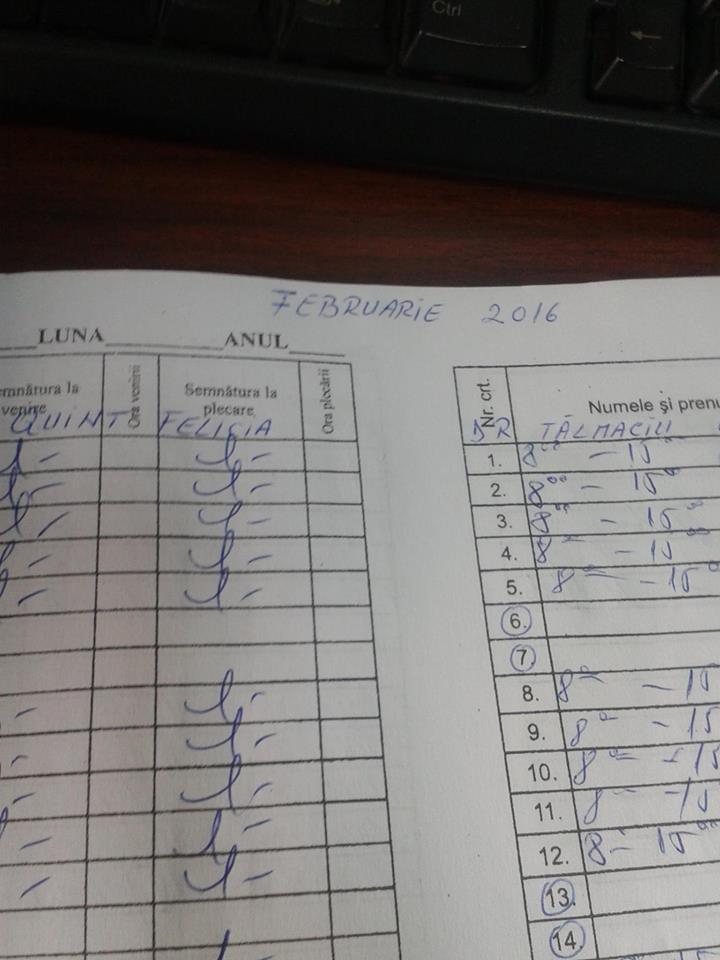 Ctrl
←
FEBRUARIE 2016
LUNA ANUL
mnătura la venire
Ora venirii
Semnătura la plecare
Ora plecării
QUINT FELICIA
Nr. crt.
Numele și prenu
DR TĂLMACIU
1. 8⁰⁰ – 15⁰⁰
2. 8⁰⁰ – 15⁰⁰
3. 8⁰⁰ – 15⁰⁰
4. 8⁰⁰ – 15⁰⁰
5. 8⁰⁰ – 15⁰
6.
7.
8. 8⁰⁰ – 15
9. 8⁰⁰ – 15
10. 8⁰⁰ – 15
11. 8⁰⁰ – 15
12. 8⁰⁰ – 15⁰⁰
13.
14.